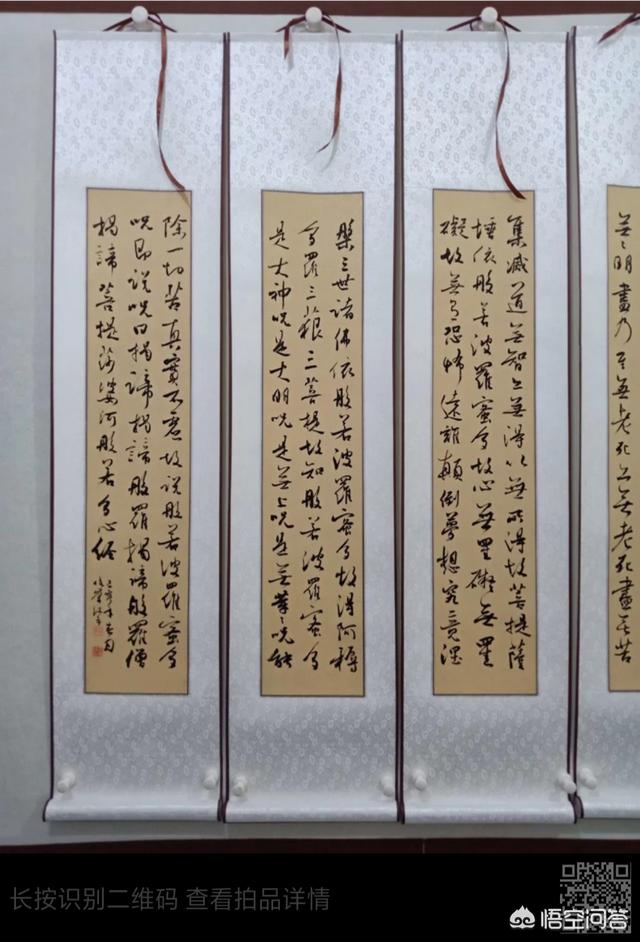 無明盡乃至無老死亦無老死盡無苦
集滅道無智亦無得以無所得故菩提薩
埵依般若波羅蜜多故心無罣礙無罣
礙故無有恐怖遠離顛倒夢想究竟涅
槃三世諸佛依般若波羅蜜多故得阿耨
多羅三藐三菩提故知般若波羅蜜多
是大神呪是大明呪是無上呪是無等々呪能
除一切苦真實不虛故說般若波羅蜜多
呪即說呪曰揭諦揭諦般羅揭諦般羅僧
揭諦菩提莎婆河般若多心經
长按识别二维码 查看拍品详情
悟空问答